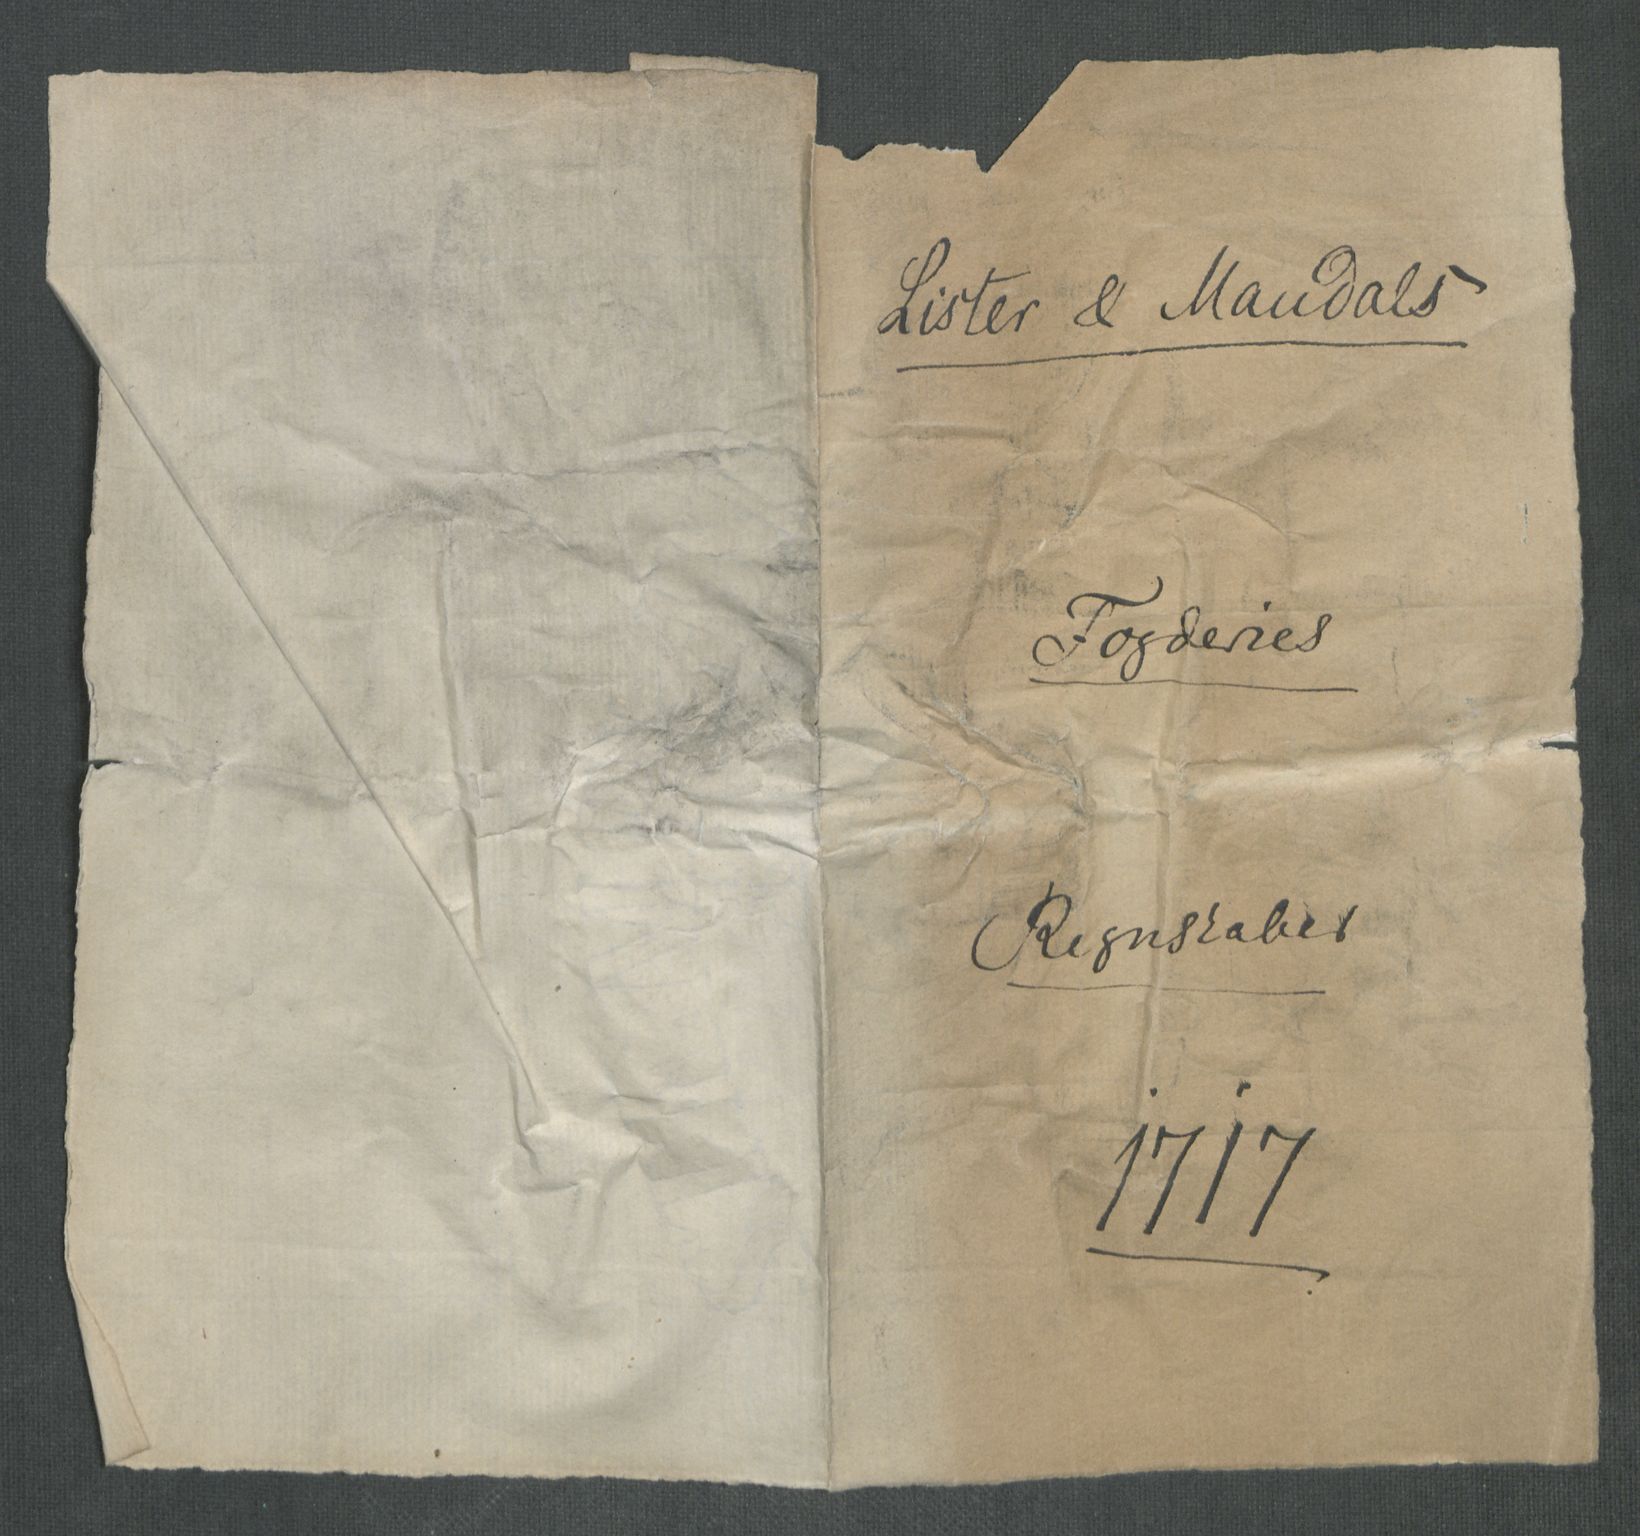 Lister & Mandals
Fogderies
Regnskaber
1717